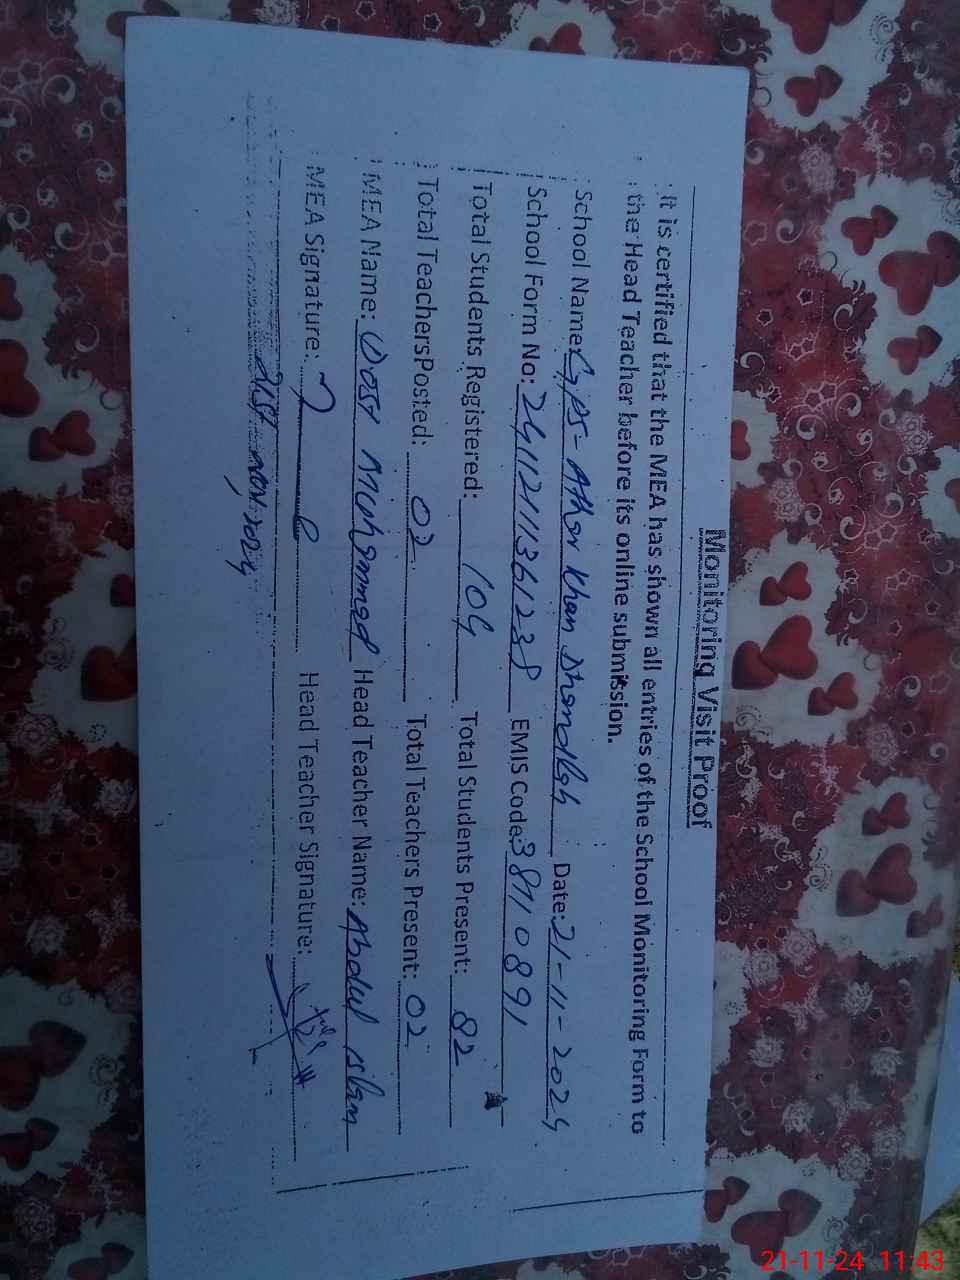 Monitoring Visit Proof
It is certified that the MEA has shown all entries of the School Monitoring Form to
the Head Teacher before its online submission.
School Name: GPS- Ather Khan Dhandlah Date: 21-11-2024
School Form No: 2411211361238 EMIS Code: 38110891
Total Students Registered: 104 Total Students Present: 82
Total TeachersPosted: 02 Total Teachers Present: 02
MEA Name: Dost Muhammad Head Teacher Name: Abdul islam
MEA Signature: Head Teacher Signature:
21st Nov:2024
21-11-24 11:43